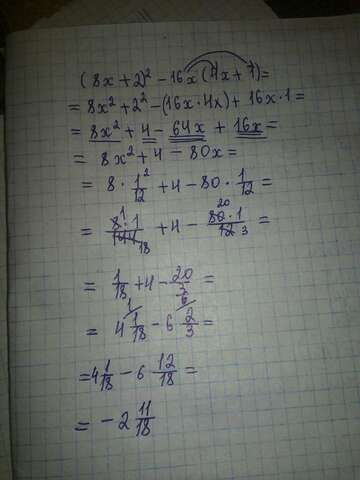 (8x+2)² - 16x(4x+1)=
= 8x²+2²-(16x·4x)+16x·1=
= 8x²+4-64x+16x=
= 8x²+4-80x=
= 8·1/12²+4-80·1/12=
= 8¹·1/144 18+4-80 20·1/12 3=
= 1/18+4-20/3=
= 4 1/18-6 2/3=
=4 1/18-6 12/18=
= -2 11/18